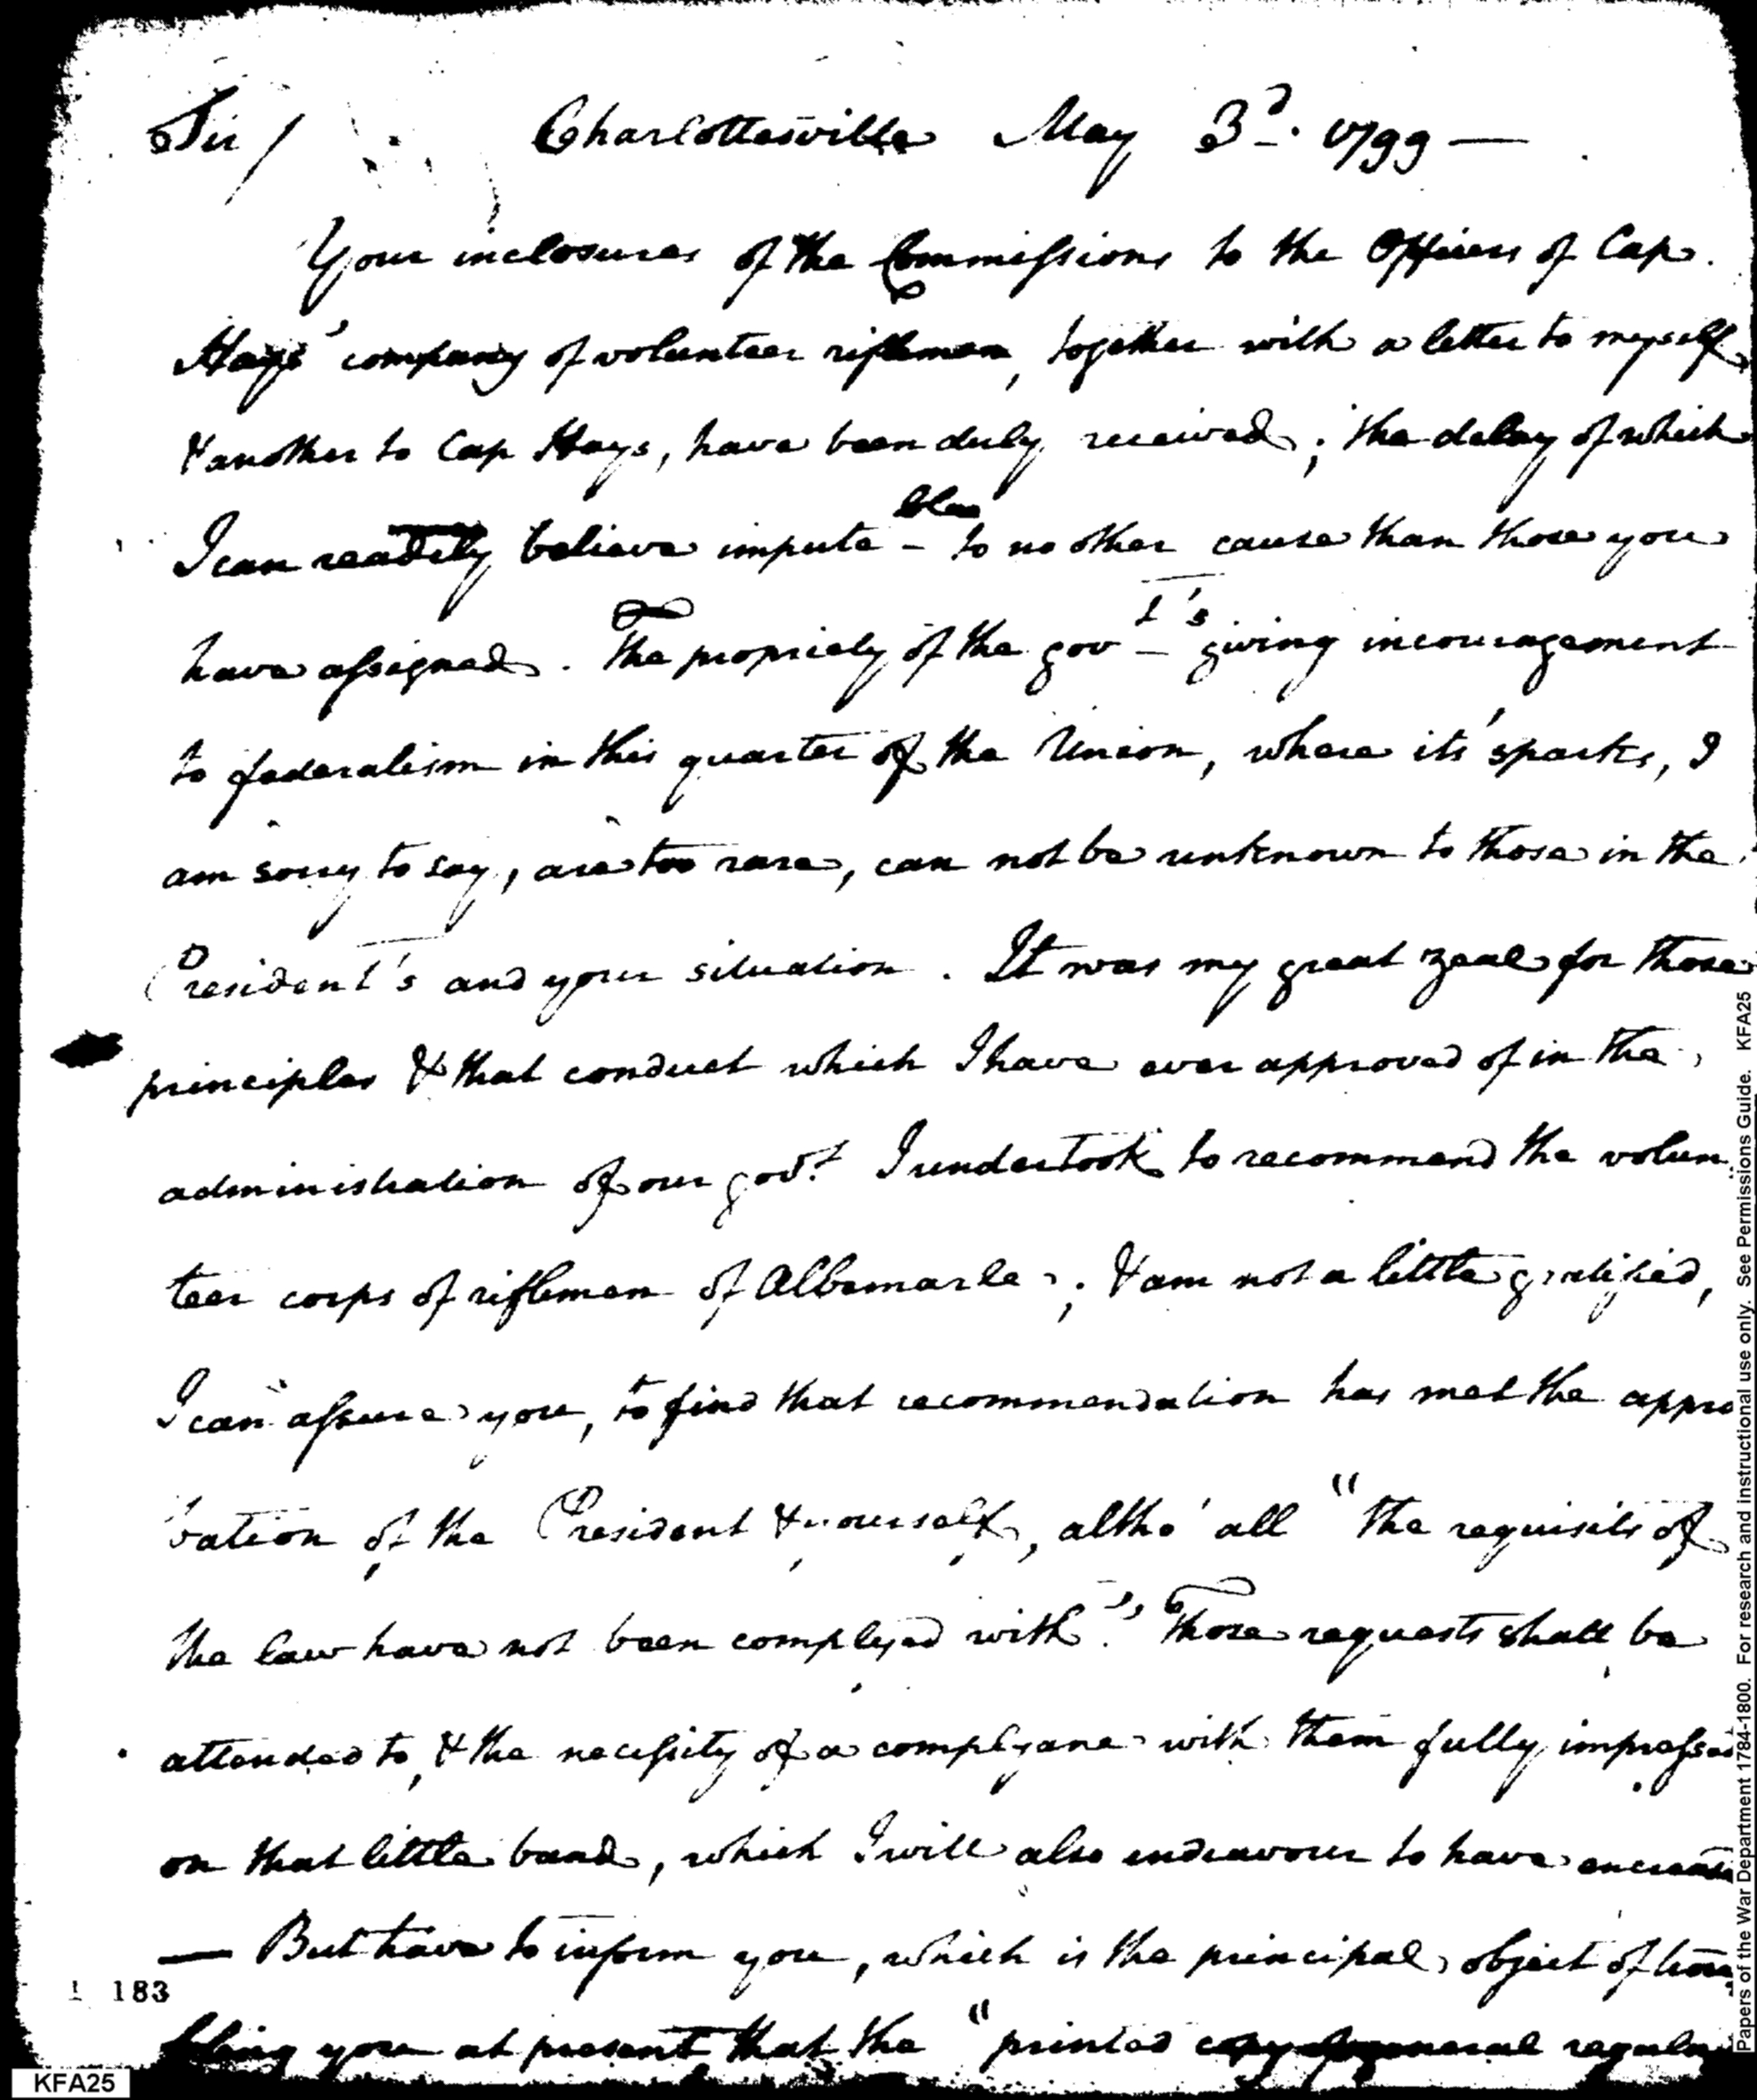 Sir/ Charlottesville May 3d. 1799 —
Your inclosures of the Commissions to the Officers of Cap.
Hays' company of volunteer riflemen, together with a letter to myself
& another to Cap Hays, have been duly received; the delay of which
I can readily believe imputable to no other cause than those you
have assigned. The propriety of the govt's giving incouragement
to federalism in this quarter of the Union, where its' sparks, I
am sorry to say, are too rare, can not be unknown to those in the
President's and your situation. It was my great zeal for those
principles & that conduct which I have ever approved of in the
administration of our govt. I undertook to recommend the volun
teer corps of riflemen of Albemarle; & am not a little gratified,
I can assure you, to find that recommendation has met the appro
bation of the President & yourself, altho' all "the requisits of
the law have not been complyed with." Those requests shall be
attended to, & the necessity of a complyance with them fully impressed
on that little band, which I will also endeavour to have encreased
— But have to inform you, which is the principal object of trou
bling you at present that the "printed copy of general regula
1 183
KFA25
Papers of the War Department 1784-1800. For research and instructional use only. See Permissions Guide. KFA25